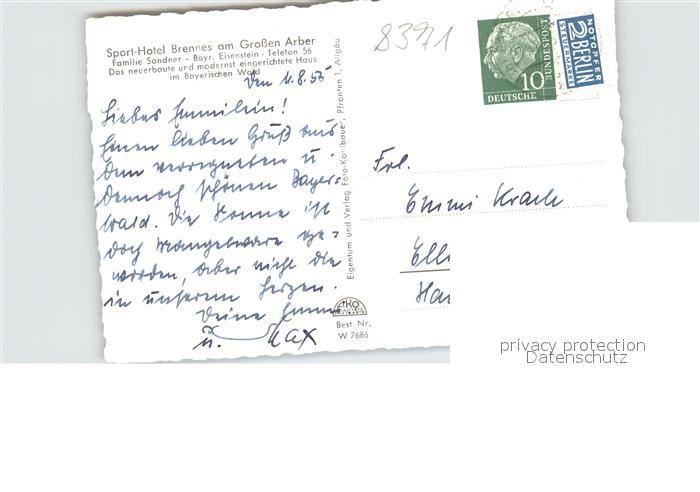 Sport-Hotel Brennes am Großen Arber
Familie Sandner - Bayr. Eisenstein - Telefon 56
Das neuerbaute und modernst eingerichtete Haus
im Bayerischen Wald
Den 11.8.55
Liebes Emmilein!
Einen lieben Gruß aus
dem verregneten u.
dennoch schönen Bayer-
wald. Die Sonne ist
doch Mangelware ge-
worden, aber nicht die
in unserem Herzen.
Deine
u. Max
Eigentum und Verlag Foto-Kohlbauer, Pfronten 1, Allgäu
Best. Nr.
W 7686
8371
10
DEUTSCHE
BUNDESPOST
NOTOPFER
2 BERLIN
STEUERMARKE
Frl.
Emmi Krach
Ell
Ha
privacy protection
Datenschutz